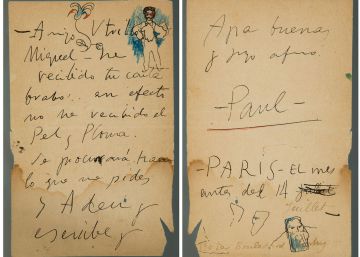 -Amigo Utrillo
Miguel - he
recibido tu carta
brabo.. en efecto
no he recibido el
Pel y Ploma.
Se procurará
lo que me pides
y Adeu y
escribe y
Apa buenas
y
-Paul-
-PARIS- EL mes
antes del 14
Juillet-